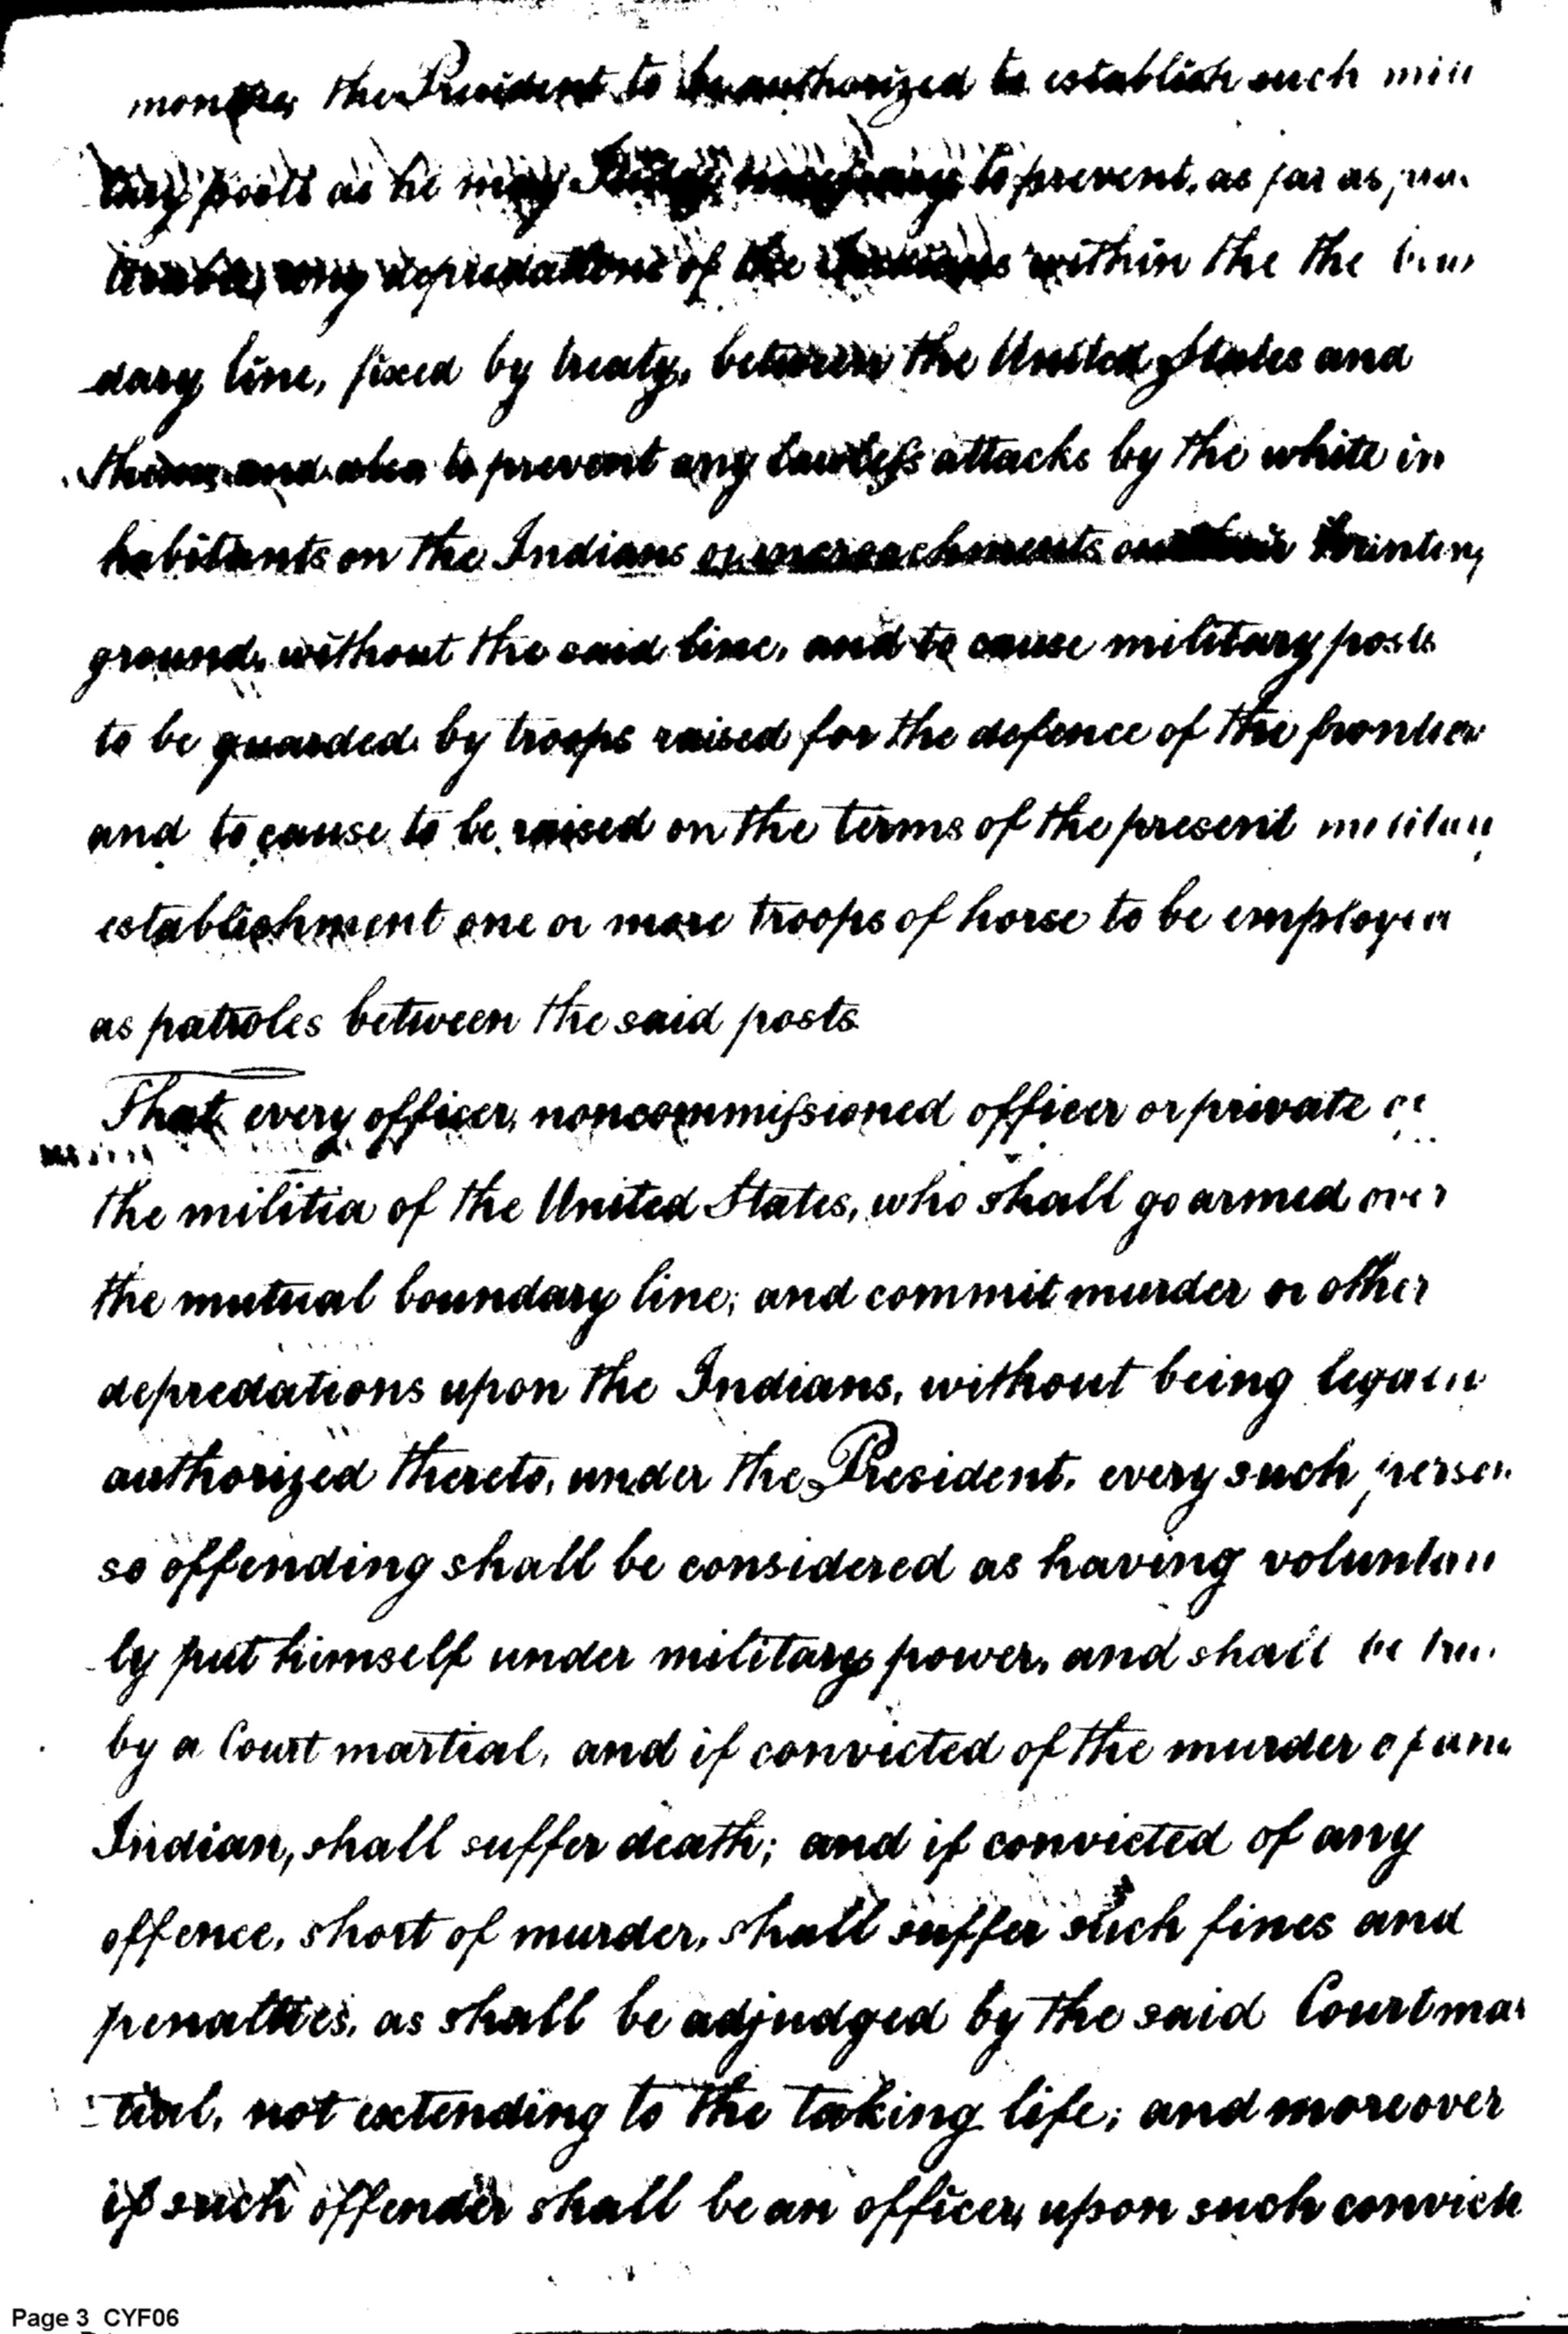 the President to be authorized to establish such mili
tary posts as he may judge necessary to prevent, as far as
any depredations of the Indians within the the boun
dary line, fixed by treaty, between the United States and
them, and also to prevent any lawless attacks by the white in
habitants on the Indians or encroachments on their hunting
ground, without the said line, and to cause military posts
to be guarded by troops raised for the defence of the frontier
and to cause to be raised on the terms of the present military
establishment one or more troops of horse to be employed
as patroles between the said posts
That every officer, noncommissioned officer or private of
the militia of the United States, who shall go armed over
the mutual boundary line; and commit murder or other
depredations upon the Indians, without being legally
authorized thereto, under the President, every such person
so offending shall be considered as having voluntari
ly put himself under military power, and shall be
by a Court martial, and if convicted of the murder of any
Indian, shall suffer death; and if convicted of any
offence, short of murder, shall suffer such fines and
penalties, as shall be adjudged by the said Court mar
tial, not extending to the taking life; and moreover
if such offender shall be an officer, upon such convict
Page 3 CYF06